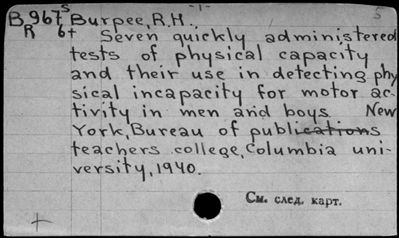 B 967 s Burpee, R.H. -1- 5
R 6+ Seven quickly administered
tests of physical capacity
and their use in detecting phy
sical incapacity for motor ac-
tivity in men and boys New
York, Bureau of publications
teachers college, Columbia uni-
versity, 1940.
См. след. карт.
+